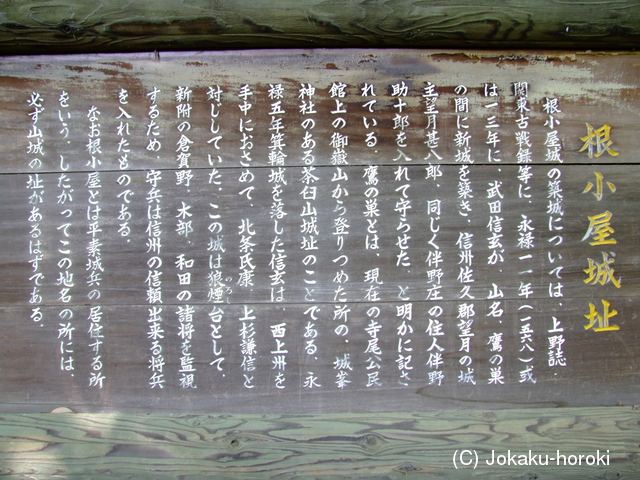 根小屋城址
根小屋城の築城については、上野誌、
関東古戦録等に、永禄一一年(一五六八)或
は一三年に、武田信玄が、山名、鷹の巣
の間に新城を築き、信州佐久郡望月の城
主望月甚八郎、同じく伴野庄の住人伴野
助十郎を入れて守らせた、と明かに記さ
れている。鷹の巣とは、現在の寺尾公民
館上の御嶽山から登りつめた所の、城峯
神社のある茶臼山城址のことである。永
禄五年箕輪城を落した信玄は、西上州を
手中におさめて、北条氏康、上杉謙信と
対じしていた。この城は狼煙台として、
のろし
新附の倉賀野、木部、和田の諸将を監視
するため、守兵は信州の信頼出来る将兵
を入れたものである。
なお根小屋とは平素城兵の居住する所
をいう。したがってこの地名の所には、
必ず山城の址があるはずである。
(C) Jokaku-horoki